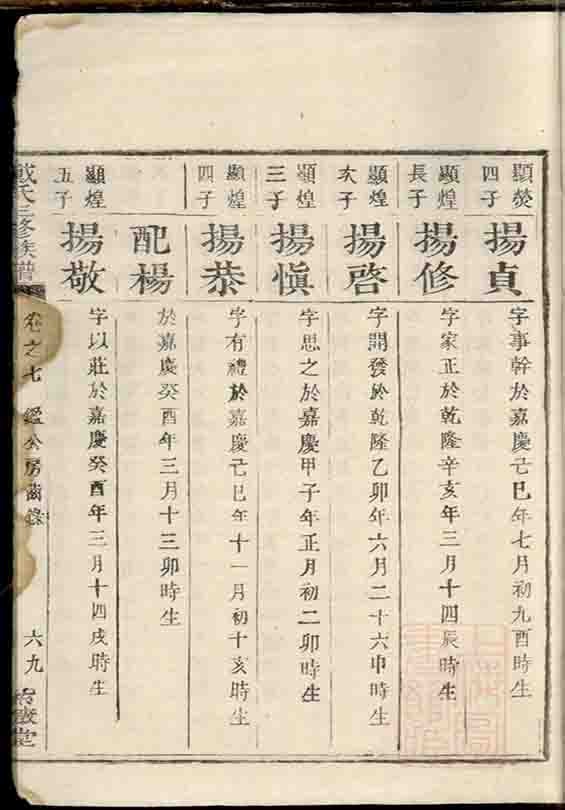 顯熒
四子
揚貞
字事幹於嘉慶己巳年七月初九酉時生
顯煌
長子
揚修
字家正於乾隆辛亥年三月十四辰時生
顯煌
次子
揚啓
字開發於乾隆乙卯年六月二十六申時生
顯煌
三子
揚愼
字思之於嘉慶甲子年正月初二卯時生
顯煌
四子
揚恭
字有禮於嘉慶己巳年十一月初十亥時生
配楊
於嘉慶癸酉年三月十三卯時生
顯煌
五子
揚敬
字以莊於嘉慶癸酉年三月十四戌時生
戴氏三修族譜
卷之七 鑑公房齒錄 六九